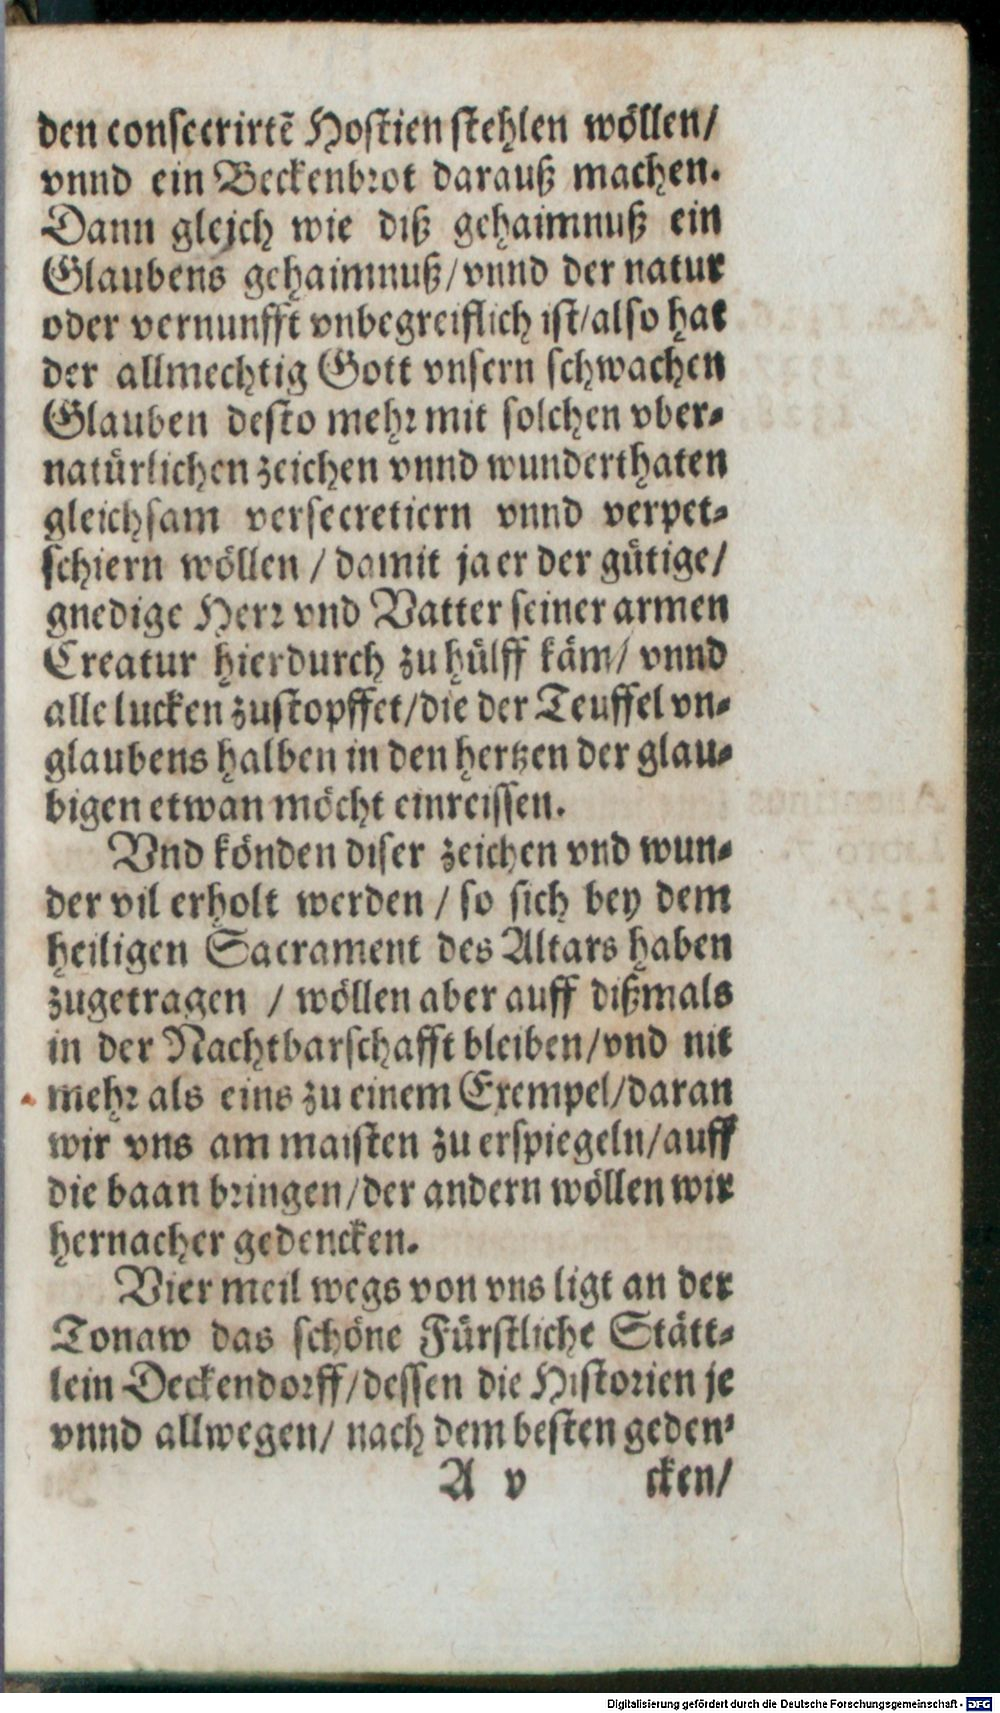 den consecrirtẽ Hostien stehlen wöllen/
vnnd ein Beckenbrot darauß machen.
Dann gleich wie diß gehaimnuß ein
Glaubens gehaimnuß/vnnd der natur
oder vernunfft vnbegreiflich ist/also hat
der allmechtig Gott vnsern schwachen
Glauben desto mehr mit solchen vber-
natürlichen zeichen vnnd wunderthaten
gleichsam versecretiern vnnd verpet-
schiern wöllen / damit ja er der gütige/
gnedige Herr vnd Vatter seiner armen
Creatur hierdurch zu hülff käm/ vnnd
alle lucken zustopffet/die der Teuffel vn-
glaubens halben in den hertzen der glau-
bigen etwan möcht einreissen.
Vnd könden diser zeichen vnd wun-
der vil erholt werden / so sich bey dem
heiligen Sacrament des Altars haben
zugetragen / wöllen aber auff dißmals
in der Nachtbarschafft bleiben/vnd nit
mehr als eins zu einem Exempel/daran
wir vns am maisten zu erspiegeln/auff
die baan bringen/der andern wöllen wir
hernacher gedencken.
Vier meil wegs von vns ligt an der
Tonaw das schöne Fürstliche Stätt-
lein Deckendorff/dessen die Historien je
vnnd allwegen/ nach dem besten geden-
A v cken/
Digitalisierung gefördert durch die Deutsche Forschungsgemeinschaft - DFG